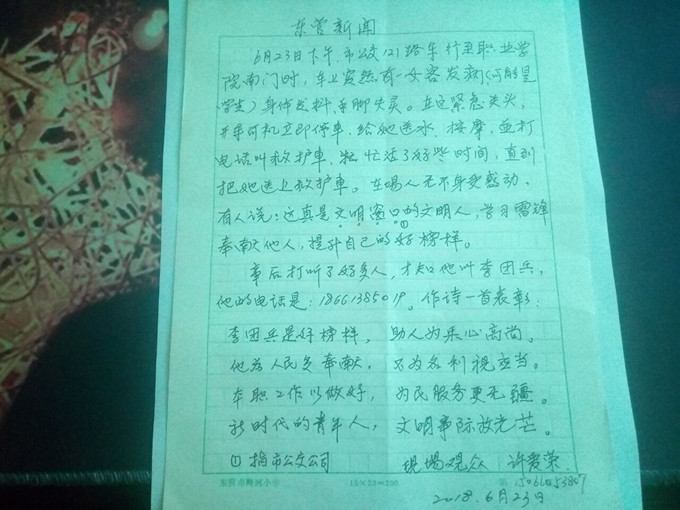 东营新闻
6月23日下午，市公交121路车行至职业学
院南门时，车上突然有一女客发病（可能是
学生）身体发抖，手脚失灵。在这紧急关头，
开车司机立即停车，给她送水、按摩，并打
电话叫救护车，忙活了好些时间，直到
把她送上救护车。在场人无不身受感动，
有人说：这真是文明窗口①的文明人，学习雷锋
奉献他人，提升自己的好榜样。
事后打听了好多人，才知他叫李团兵，
他的电话是：18661385019。作诗一首表彰：
李团兵是好榜样， 助人为乐心高尚。
他为人民多奉献， 不为名利视应当。
本职工作以做好， 为民服务更无疆。
新时代的青年人， 文明事际放光芒。
①指市公交公司 现场观众 许爱荣
东营市 小学 15×20=300 第 15066053807
2018.6月23日